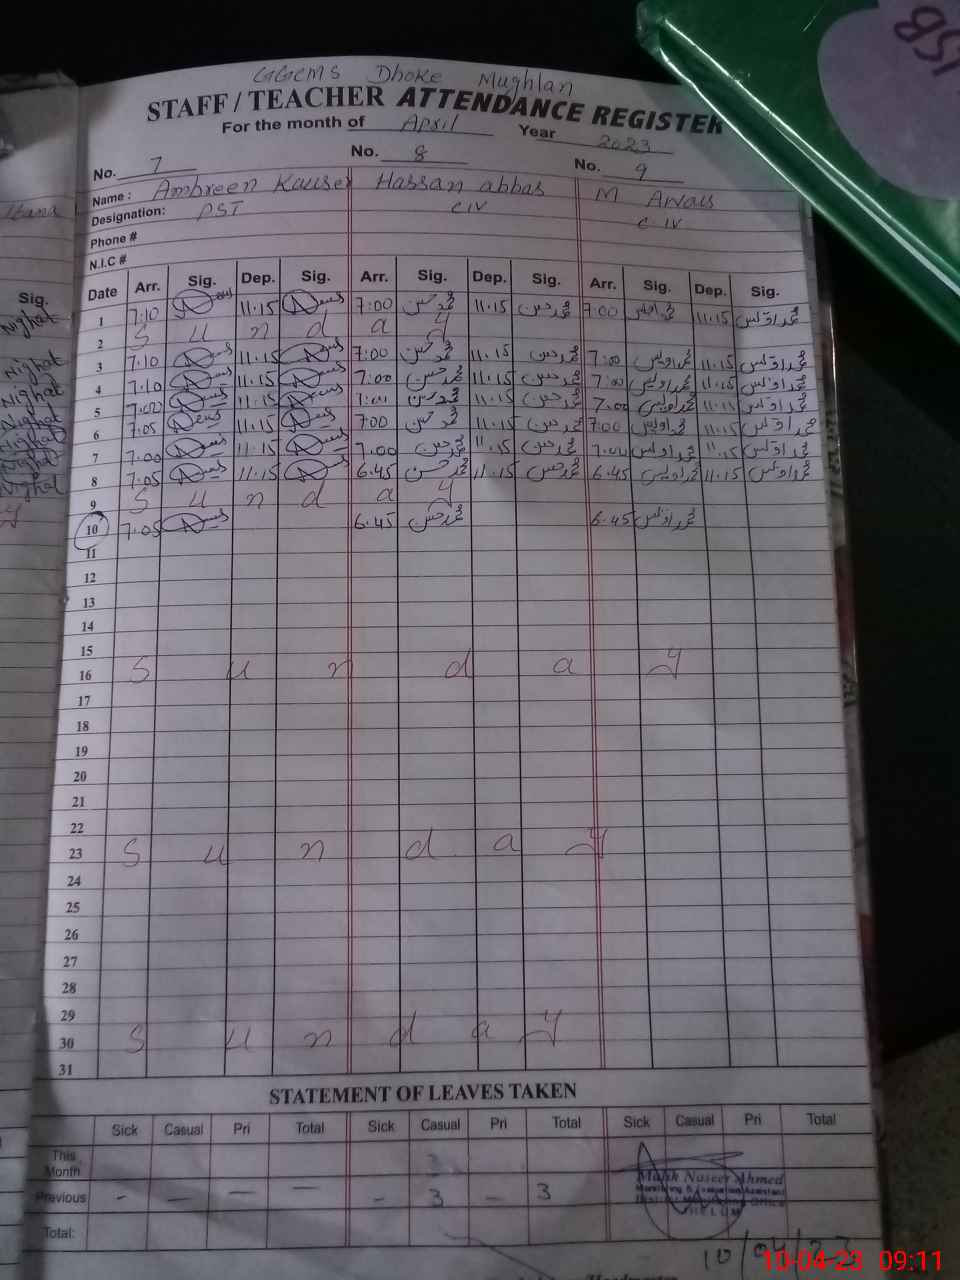 GGEMS Dhoke Mughlan
STAFF / TEACHER ATTENDANCE REGISTER
For the month of April Year 2023
No. 7 No. 8 No. 9
Name : Ambreen Kauser Hassan abbas M Awais
Designation: PST C IV C-IV
Phone #
N.I.C #
Date Arr. Sig. Dep. Sig. Arr. Sig. Dep. Sig. Arr. Sig. Dep. Sig.
1 7:10 11.15 7:00 محمد حسن 11.15 محمد حسن 7:00 محمد اویس 11.15 محمد اویس
2 S u n d a y
3 7.10 11.15 7:00 محمد حسن 11.15 محمد حسن 7:00 محمد اویس 11.15 محمد اویس
4 7.10 11.15 7:00 محمد حسن 11.15 محمد حسن 7:00 محمد اویس 11.15 محمد اویس
5 7:00 11.15 7:00 محمد حسن 11.15 محمد حسن 7.00 محمد اویس 11.15 محمد اویس
6 7.05 11.15 7:00 محمد حسن 11.15 محمد حسن 7:00 محمد اویس 11.15 محمد اویس
7 7.00 11.15 7.00 محمد حسن 11.15 محمد حسن 7.00 محمد اویس 11.15 محمد اویس
8 7.05 11.15 6.45 محمد حسن 11.15 محمد حسن 6.45 محمد اویس 11.15 محمد اویس
9 S u n d a y
10 7.05 6.45 محمد حسن 6.45 محمد اویس
11
12
13
14
15
16 S u n d a y
17
18
19
20
21
22
23 S u n d a y
24
25
26
27
28
29
30 S u n d a y
31
STATEMENT OF LEAVES TAKEN
Sick Casual Pri Total Sick Casual Pri Total Sick Casual Pri Total
This Month
Previous - — — — - 3 - 3
Total:
Malik Naseer Ahmed
Monitoring & Evaluation Assistant
District Monitoring Office
JHELUM
10/04/23
10-04-23 09:11
Sig.
Nighat
Nighat
Nighat
Nighat
Nighat
Nighat